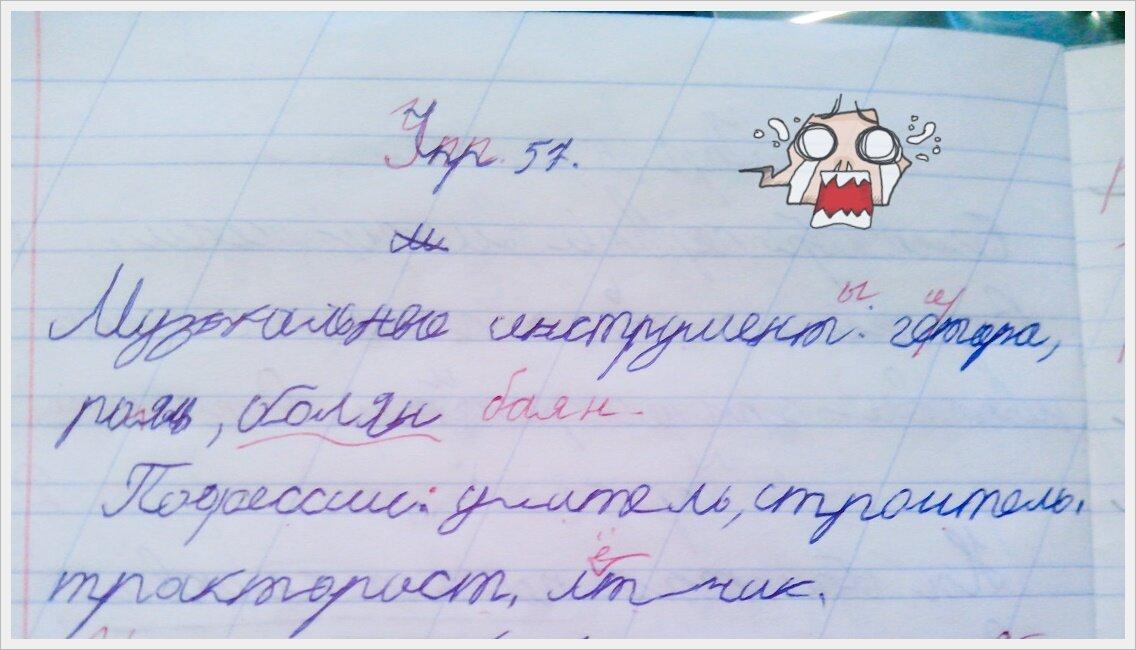 Упр. 57.
Музыкальные инструменты: гитара,
рояль, болян баян.
Пофессии: учитель, строитель.
тракторост, лётчик.